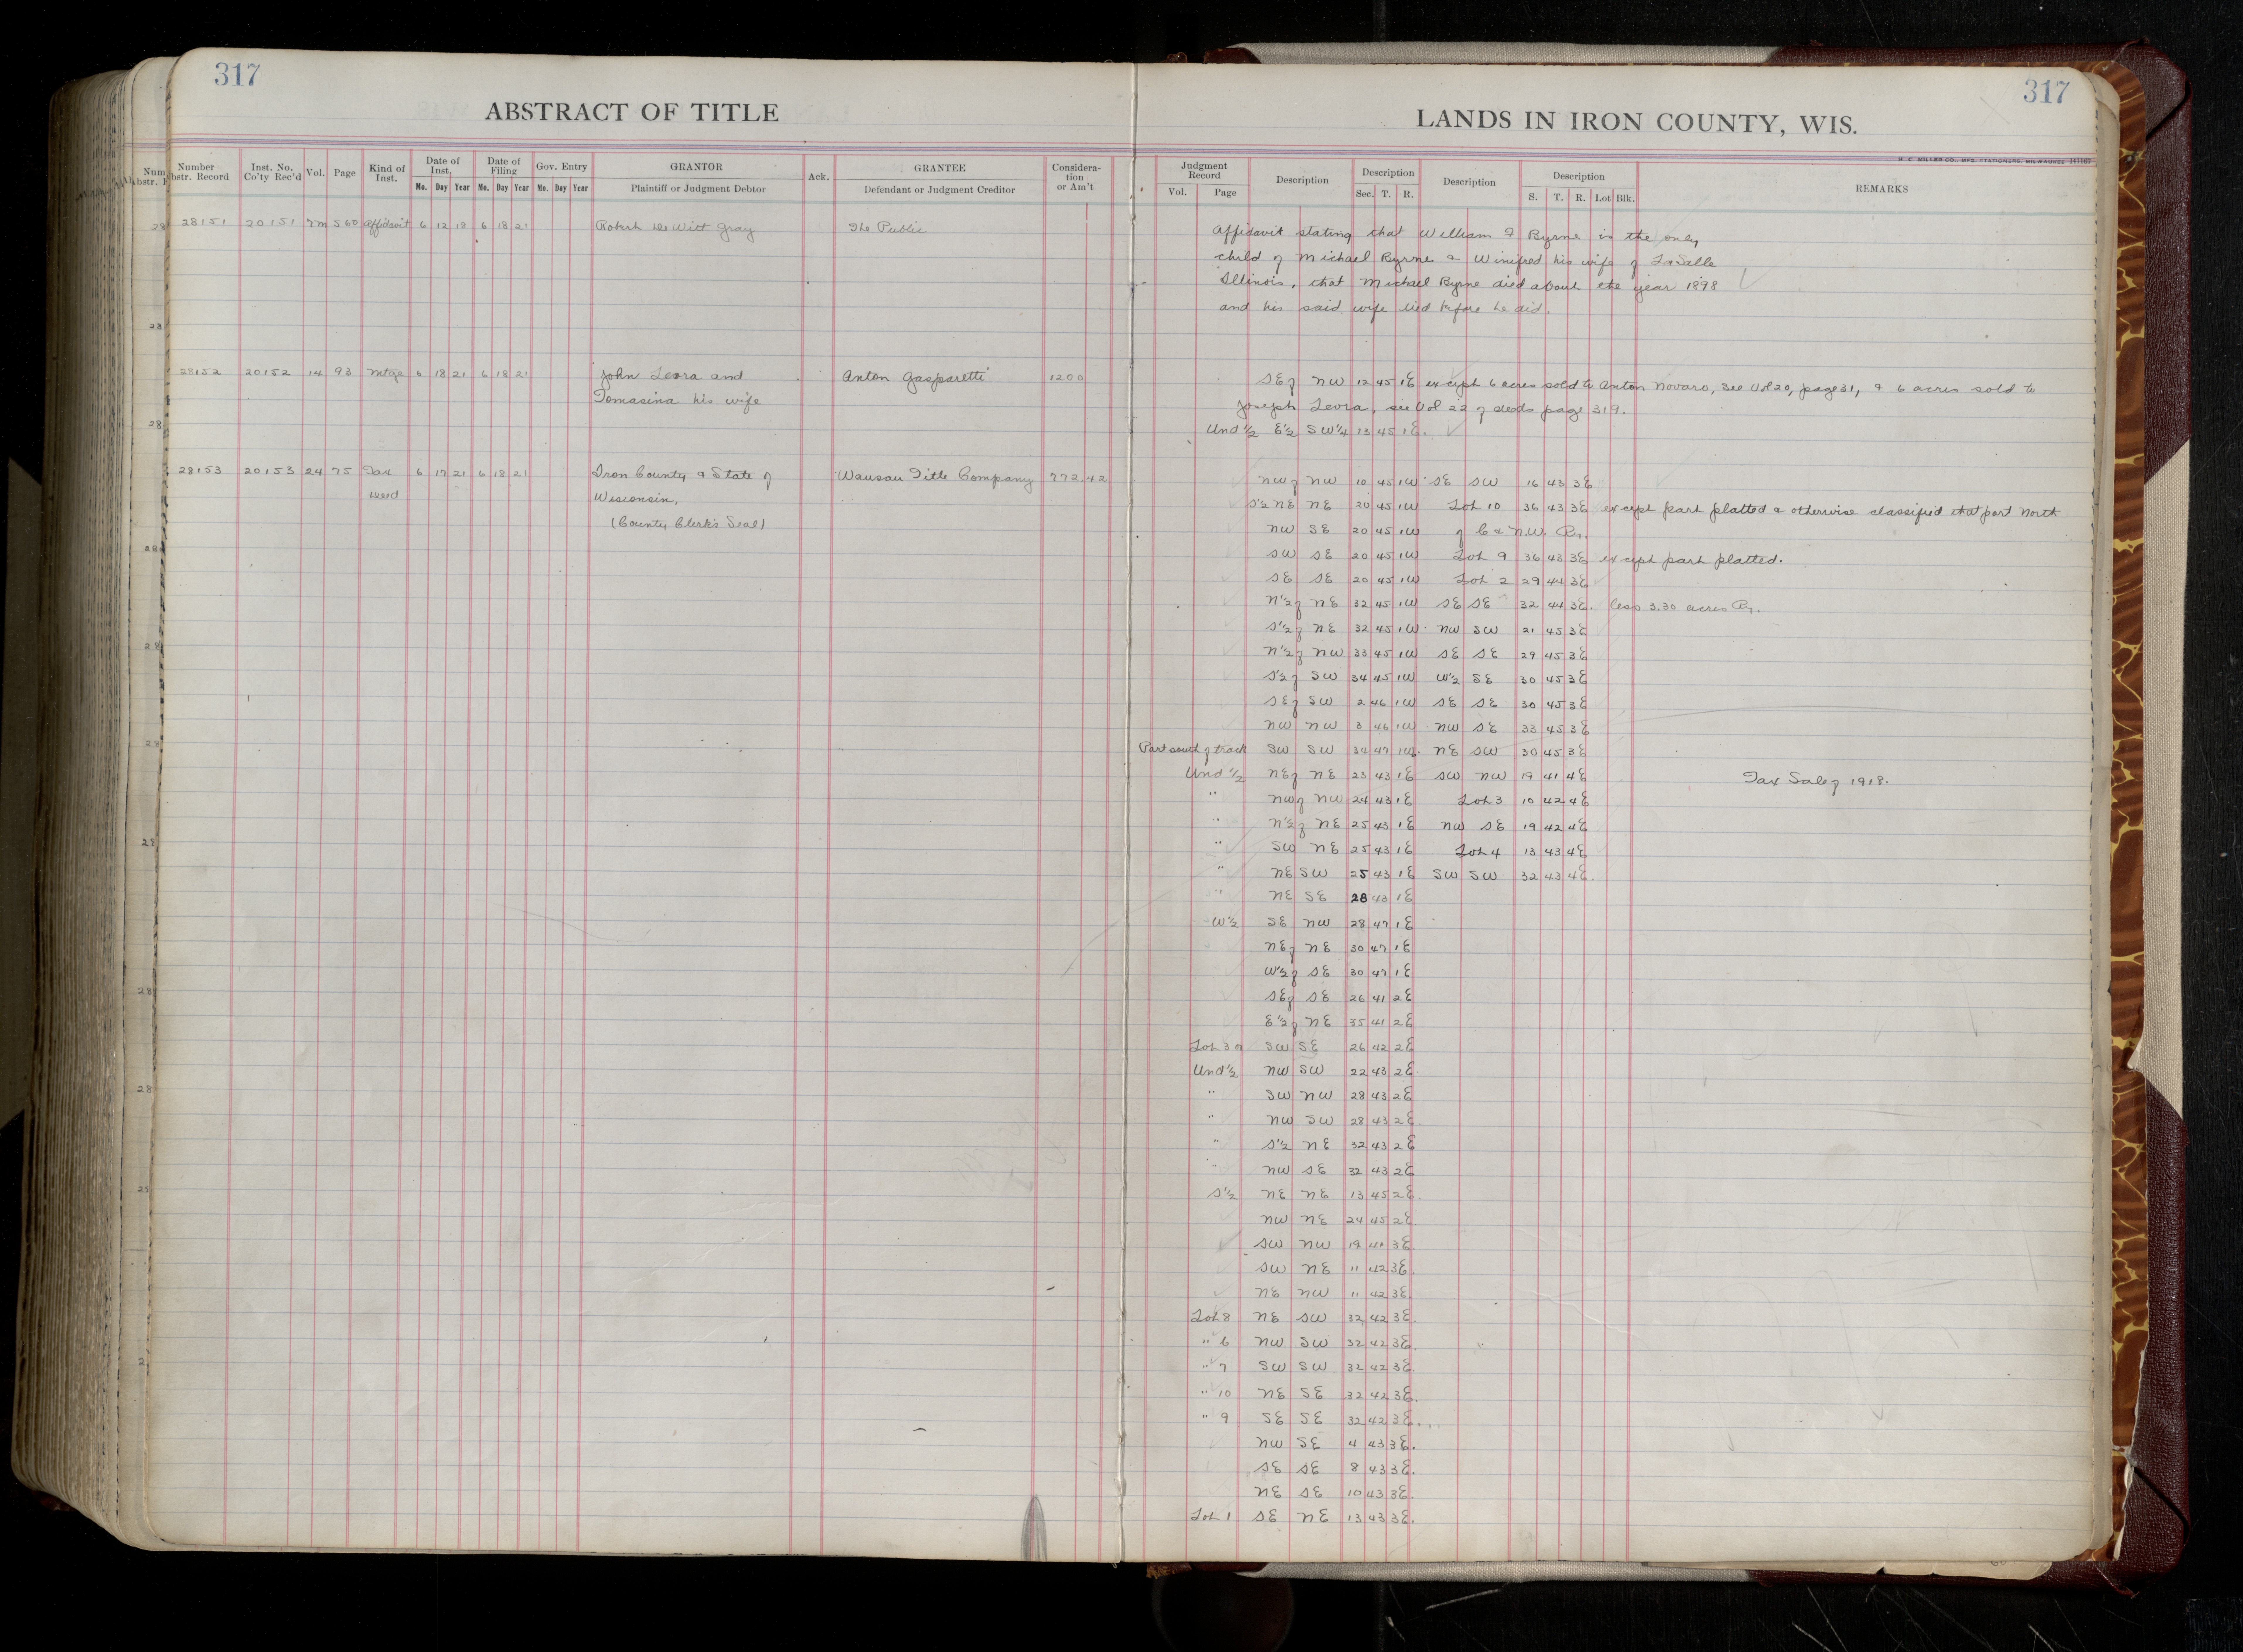 317
317
ABSTRACT OF TITLE
LANDS IN IRON COUNTY, WIS.
H. C. MILLER CO., MFG. STATIONERS, MILWAUKEE 141167
Number Abstr. Record | Inst. No. Co'ty Rec'd | Vol. | Page | Kind of Inst. | Date of Inst. Mo. Day Year | Date of Filing Mo. Day Year | Gov. Entry Mo. Day Year | GRANTOR Plaintiff or Judgment Debtor | Ack. | GRANTEE Defendant or Judgment Creditor | Consideration or Am't
Judgment Record Vol. Page | Description | Description Sec. T. R. | Description | Description S. T. R. Lot Blk. | REMARKS
28151 20151 7m 560 Affidavit 6 12 18 6 18 21 Robert De Witt Gray The Public
Affidavit stating that William J Byrne is the only
child of Michael Byrne & Winifred his wife of LaSalle
Illinois, that Michael Byrne died about the year 1898
and his said wife died before he did.
28152 20152 14 93 Mtge 6 18 21 6 18 21 John Leora and Anton Gasparetti 1200
Tomasina his wife
SE of NW 12 45 1E except 6 acres sold to Anton Novaro, see Vol 20, page 31, & 6 acres sold to
Joseph Leora, see Vol 22 of deeds page 319.
Und 1/2 E 1/2 SW 1/4 13 45 1E.
28153 20153 24 75 Tax 6 17 21 6 18 21 Iron County & State of Wausau Title Company 772.42
Deed Wisconsin,
(County Clerk's Seal)
NW of NW 10 45 1W SE SW 16 43 3E
S 1/2 NE NE 20 45 1W Lot 10 36 43 3E except part platted & otherwise classified that part North
NW SE 20 45 1W of C & N.W. Ry.
SW SE 20 45 1W Lot 9 36 43 3E except part platted.
SE SE 20 45 1W Lot 2 29 44 3E
N 1/2 of NE 32 45 1W SE SE 32 44 3E. less 3.30 acres Ry.
S 1/2 of NE 32 45 1W NW SW 21 45 3E
N 1/2 of NW 33 45 1W SE SE 29 45 3E
S 1/2 of SW 34 45 1W W 1/2 SE 30 45 3E
SE of SW 2 46 1W SE SE 30 45 3E
NW NW 3 46 1W NW SE 33 45 3E
Part south of track SW SW 34 47 1W. NE SW 30 45 3E
Und 1/2 NE of NE 23 43 1E SW NW 19 41 4E Tax Sale of 1918.
" NW of NW 24 43 1E Lot 3 10 42 4E
" N 1/2 of NE 25 43 1E NW SE 19 42 4E
" SW NE 25 43 1E Lot 4 13 43 4E
" NE SW 25 43 1E SW SW 32 43 4E.
" NE SE 28 43 1E
W 1/2 SE NW 28 47 1E
NE of NE 30 47 1E
W 1/2 of SE 30 47 1E
SE of SE 26 41 2E
E 1/2 of NE 35 41 2E
Lot 3 or SW SE 26 42 2E
Und 1/2 NW SW 22 43 2E
" SW NW 28 43 2E
" NW SW 28 43 2E
" S 1/2 NE 32 43 2E
" NW SE 32 43 2E
S 1/2 NE NE 13 45 2E.
NW NE 24 45 2E
SW NW 19 41 3E.
SW NE 11 42 3E.
NE NW 11 42 3E
Lot 8 NE SW 32 42 3E.
" 6 NW SW 32 42 3E.
" 7 SW SW 32 42 3E.
" 10 NE SE 32 42 3E.
" 9 SE SE 32 42 3E.
NW SE 4 43 3E.
SE SE 8 43 3E.
NE SE 10 43 3E.
Lot 1 SE NE 13 43 3E.